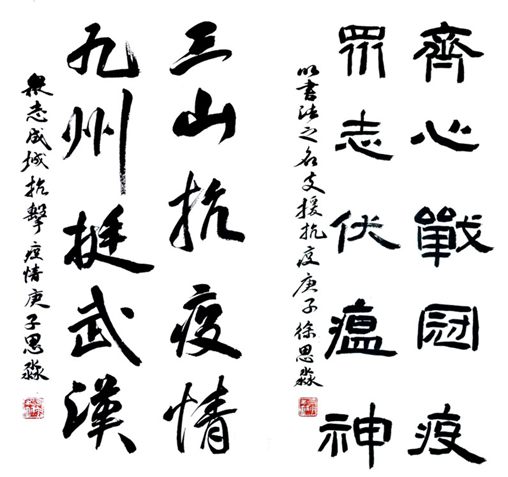 齊心戰冠疫
眾志伏瘟神
以書法之名支援抗疫庚子徐思淼
三山抗疫情
九州挺武漢
衆志成城抗擊疫情庚子思淼